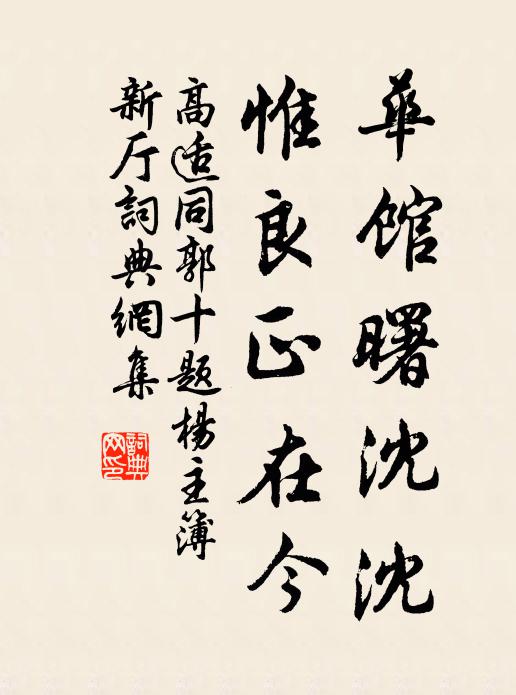 華館曙沈沈
惟良正在今
高适同郭十題楊主簿
新厅詞典網集
詞典网印